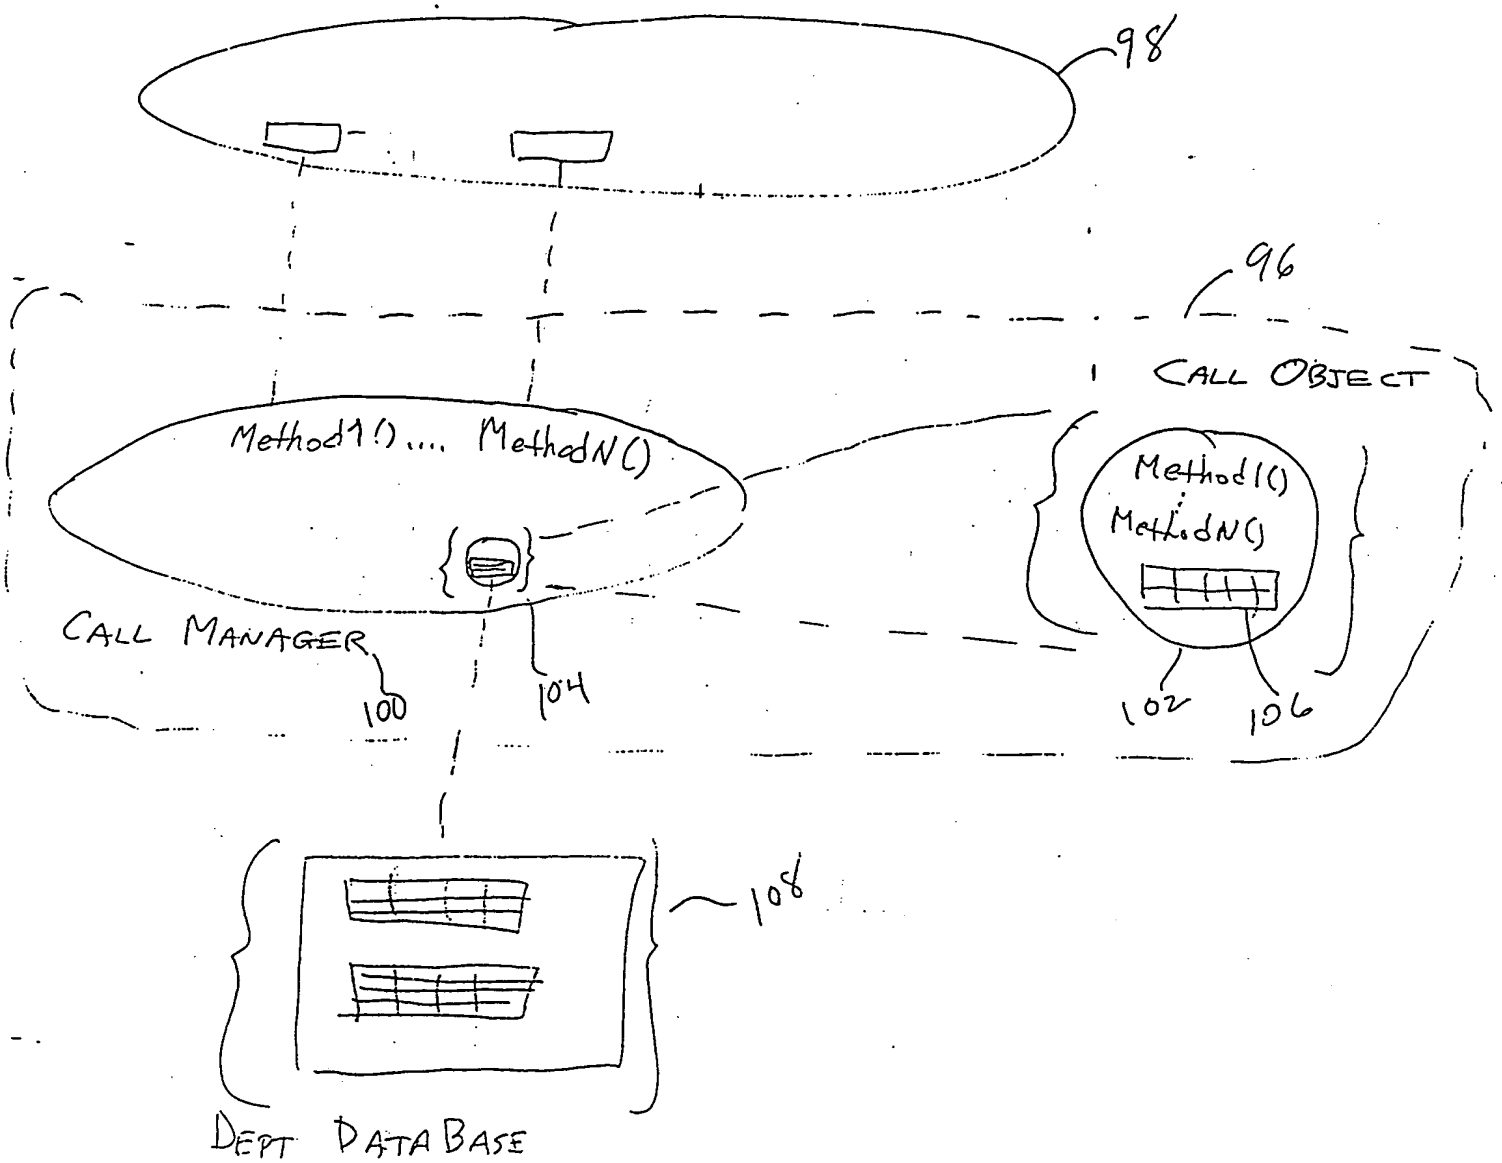 98
96
CALL OBJECT
Method1().... MethodN()
Method1()
MethodN()
CALL MANAGER
100
104
102
106
108
DEPT DATABASE